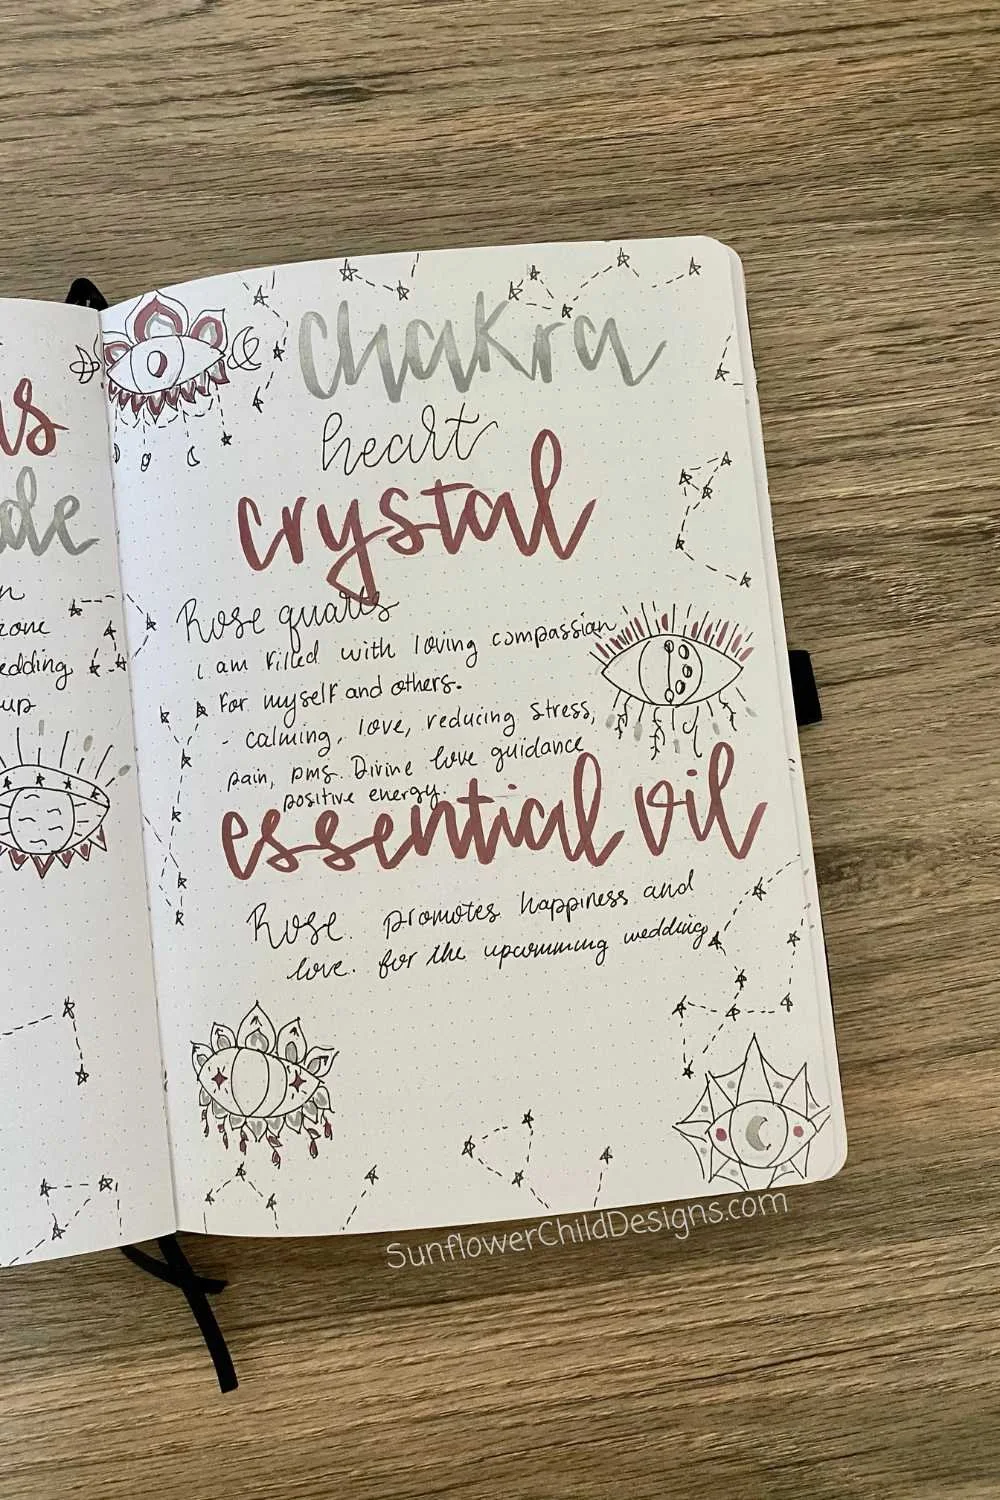 de
zone
wedding
up
chakra
heart
crystal
Rose quarts
i am filled with loving compassion
for myself and others.
- calming, love, reducing stress,
pain, pms. Divine love guidance
positive energy.
essential oil
Rose. promotes happiness and
love. for the upcomming wedding
SunflowerChildDesigns.com